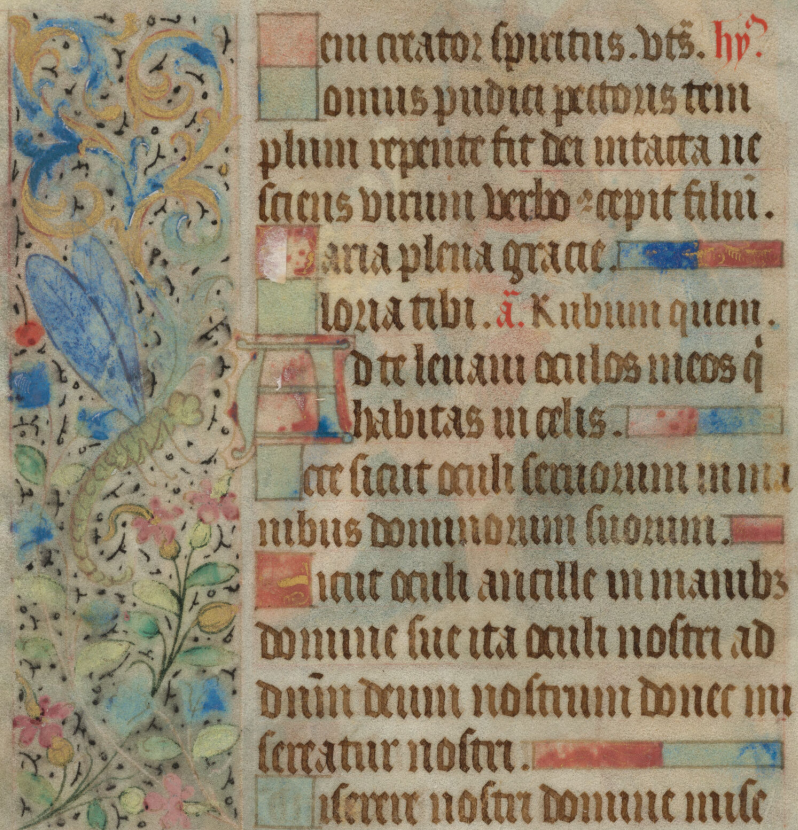 eni creator spiritus. vts̄. hy̅?
omus pudici pectoris tem
plum repente fit dei intacta ne
sciens virum verbo ꝯcepit filiū.
aria plena gracie.
loria tibi. ā. Rubum quem.
A d te leuaui oculos meos q̄
habitas in celis.
cce sicut oculi seruorum in ma
nibus dominorum suorum.
icut oculi ancille in manibꝫ
domine sue ita oculi nostri ad
dnm̄ deum nostrum donec mi
sereatur nostri.
iserere nostri domine mise